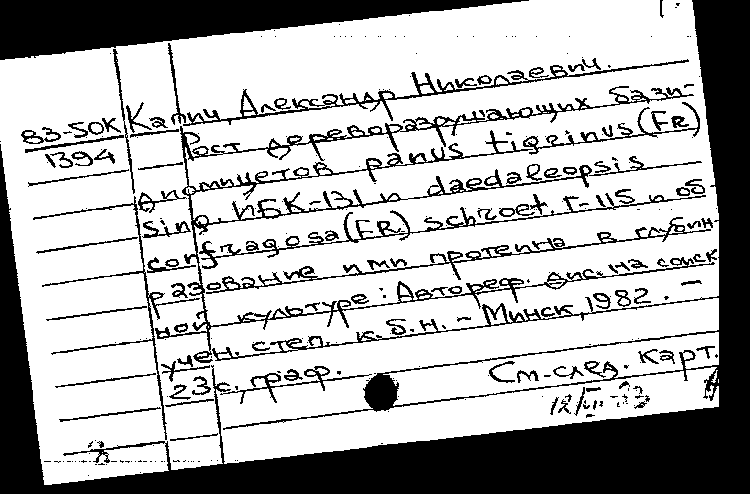 1.
83-50К Капич, Александр Николаевич.
1394 Рост дереворазрушающих бази-
диомицетов panus tigrinus (FR)
Sing. ИБК-131 и daedaleopsis
confragosa (FR.) schroet. Г-115 и об-
разование ими протеина в глубин-
ной культуре: Автореф. дис. на соиск
учен. степ. к.б.н. - Минск, 1982. -
23с., граф.
См. след. карт.